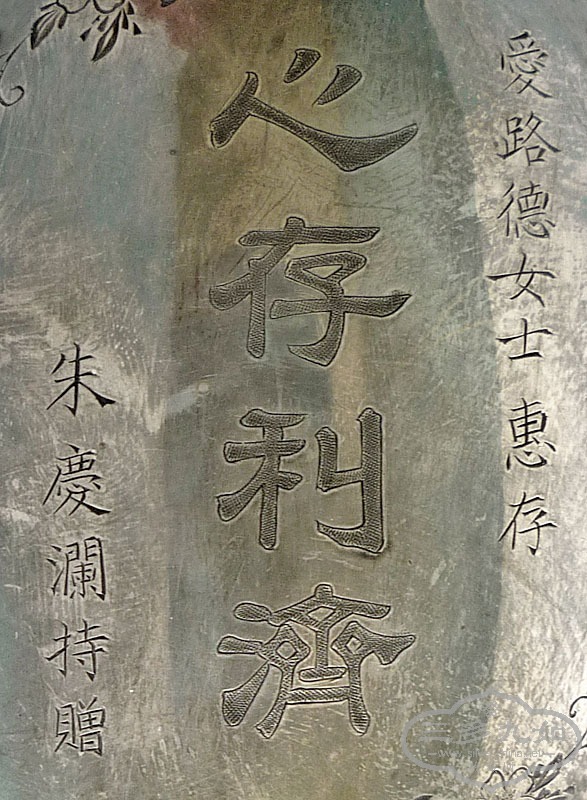 愛路德女士惠存
心存利濟
朱慶瀾持贈